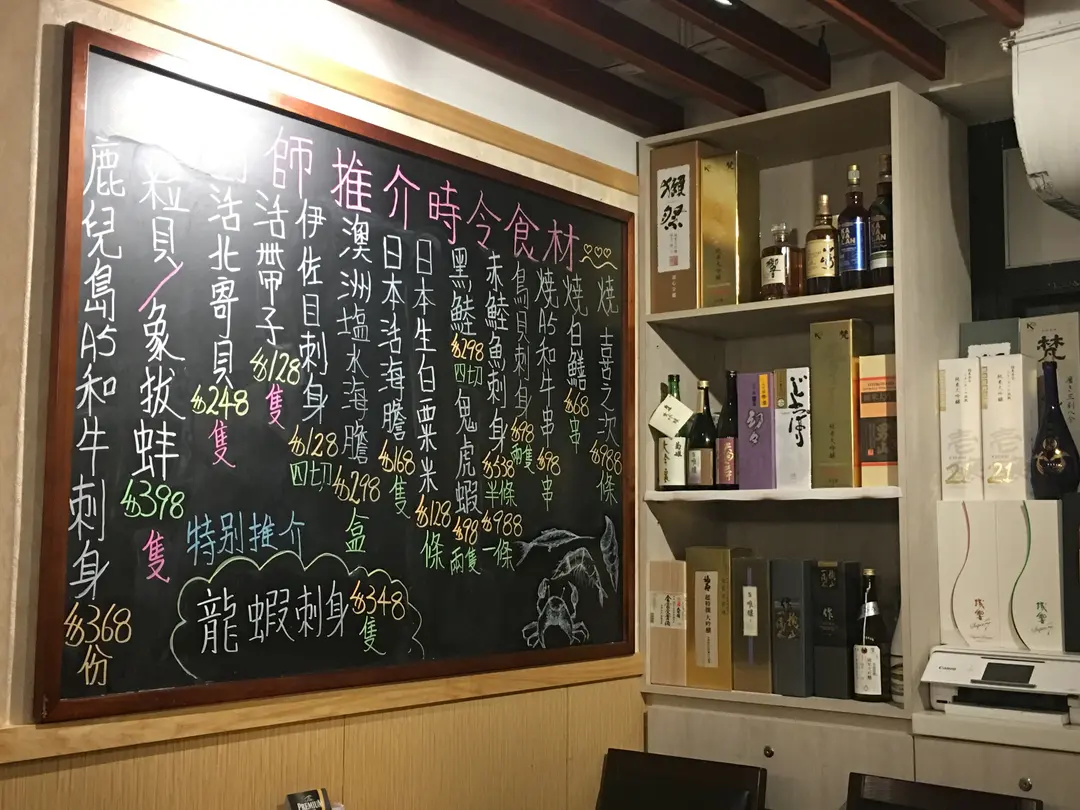 師推介時令食材
燒喜喜之次 $988 條
燒白鱔 $68 串
燒A5和牛串 $98 串
鳥貝刺身 $98 兩隻
赤鯥魚刺身 $538 半條 $988 一條
黑鯥 $298 四切
鬼虎蝦 $98 兩隻
日本生白粟米 $128 條
日本活海膽 $168 隻
澳洲塩水海膽 $298 盒
伊佐目刺身 $128 四切
活帶子 $128 隻
活北寄貝 $248 隻
粒貝/象拔蚌 $398 隻
鹿兒島A5和牛刺身 $368 份
特別推介
龍蝦刺身 $348 隻
獺祭
響
KAVALAN
梵
作
21
Canon
PREMIUM